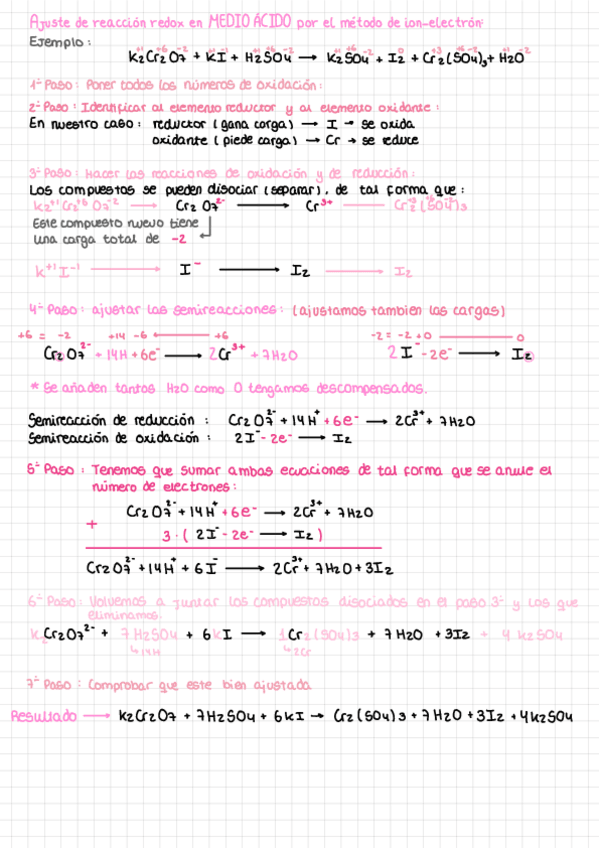 Ajuste de reacción redox en MEDIO ÁCIDO por el método de ion-electrón:
Ejemplo:
+1 +6 -2 +1 -1 +1 +6 -2 +1 +6 -2 0 +3 +6 -2 +1 -2
K2Cr2O7 + KI + H2SO4 → K2SO4 + I2 + Cr2(SO4)3 + H2O
1º Paso: Poner todos los números de oxidación:
2º Paso: Identificar al elemento reductor y al elemento oxidante:
En nuestro caso: reductor (gana carga) → I → se oxida
oxidante (piede carga) → Cr → se reduce
3º Paso: Hacer las reacciones de oxidación y de reducción:
Los compuestos se pueden disociar (separar), de tal forma que:
K2⁺¹Cr2⁺⁶O7⁻² → Cr2O7²⁻ → Cr³⁺ — Cr2(SO4)3
Este compuesto nuevo tiene
una carga total de -2
K⁺¹I⁻¹ → I⁻ → I2 → I2
4º Paso: ajustar las semireacciones: (ajustamos tambien las cargas)
+6 = -2 +14 -6 ← +6 -2 = -2 +0 — 0
Cr2O7²⁻ + 14H + 6e⁻ → 2Cr³⁺ + 7H2O 2I⁻ - 2e⁻ → I2
* Se añaden tantos H2O como O tengamos descompensados.
Semireacción de reducción: Cr2O7²⁻ + 14H⁺ + 6e⁻ → 2Cr³⁺ + 7H2O
Semireacción de oxidación: 2I⁻ - 2e⁻ → I2
5º Paso: Tenemos que sumar ambas ecuaciones de tal forma que se anule el
número de electrones:
Cr2O7²⁻ + 14H⁺ + 6e⁻ → 2Cr³⁺ + 7H2O
+
3·(2I⁻ - 2e⁻ → I2)
Cr2O7²⁻ + 14H⁺ + 6I⁻ → 2Cr³⁺ + 7H2O + 3I2
6º Paso: Volvemos a juntar los compuestos disociados en el paso 3º y los que
eliminamos.
K2Cr2O7²⁻ + 7H2SO4 + 6KI → 1Cr2(SO4)3 + 7H2O + 3I2 + 4K2SO4
↳14H ↳2Cr
7º Paso: Comprobar que este bien ajustada
Resultado → K2Cr2O7 + 7H2SO4 + 6KI → Cr2(SO4)3 + 7H2O + 3I2 + 4K2SO4